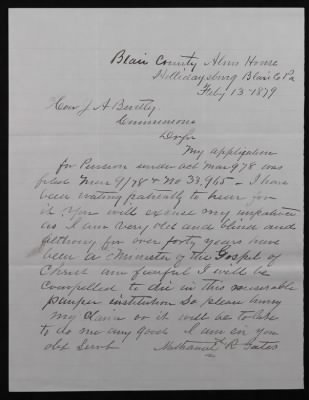 Blair County Alms House
Hollidaysburg Blair Co Pa
Feby 13-1879
Hon J. A Bently
Commissioner
D Sir
My application
for Pension under act Mar 9 78 was
filed Mar 9/78 & No 33,965 - I have
been waiting patiently to hear from
it You will excuse my impatience
as I am very old and blind and
although for over forty years have
been a Minister of the Gospel of
Christ am fearful I will be
compelled to die in this miserable
pauper institution so please hurry
my claim or it will be to late
to do me any good I am sir your
obt Servt Nathaniel R Gates